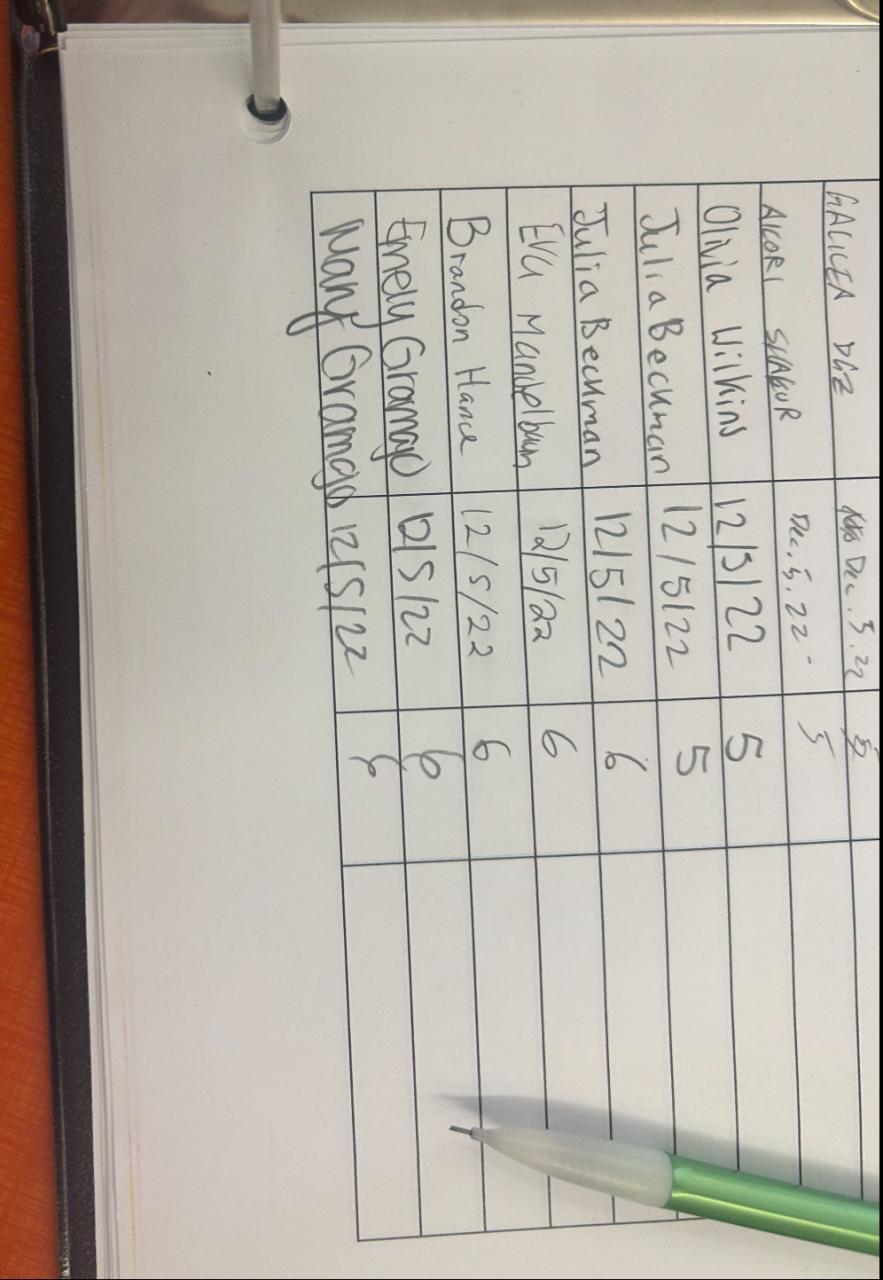 GALICEA DGZ Dec. 5. 22 5
AICORI Dec. 5. 22 5
Olivia Wilkins 12/5/22 5
Julia Beckman 12/5/22 5
Julia Beckman 12/5/22 6
Eva Mandelbaum 12/5/22 6
Brandon Hance 12/5/22 6
Emely Gramajo 12/5/22 6
Nany Gramajo 12/5/22 6